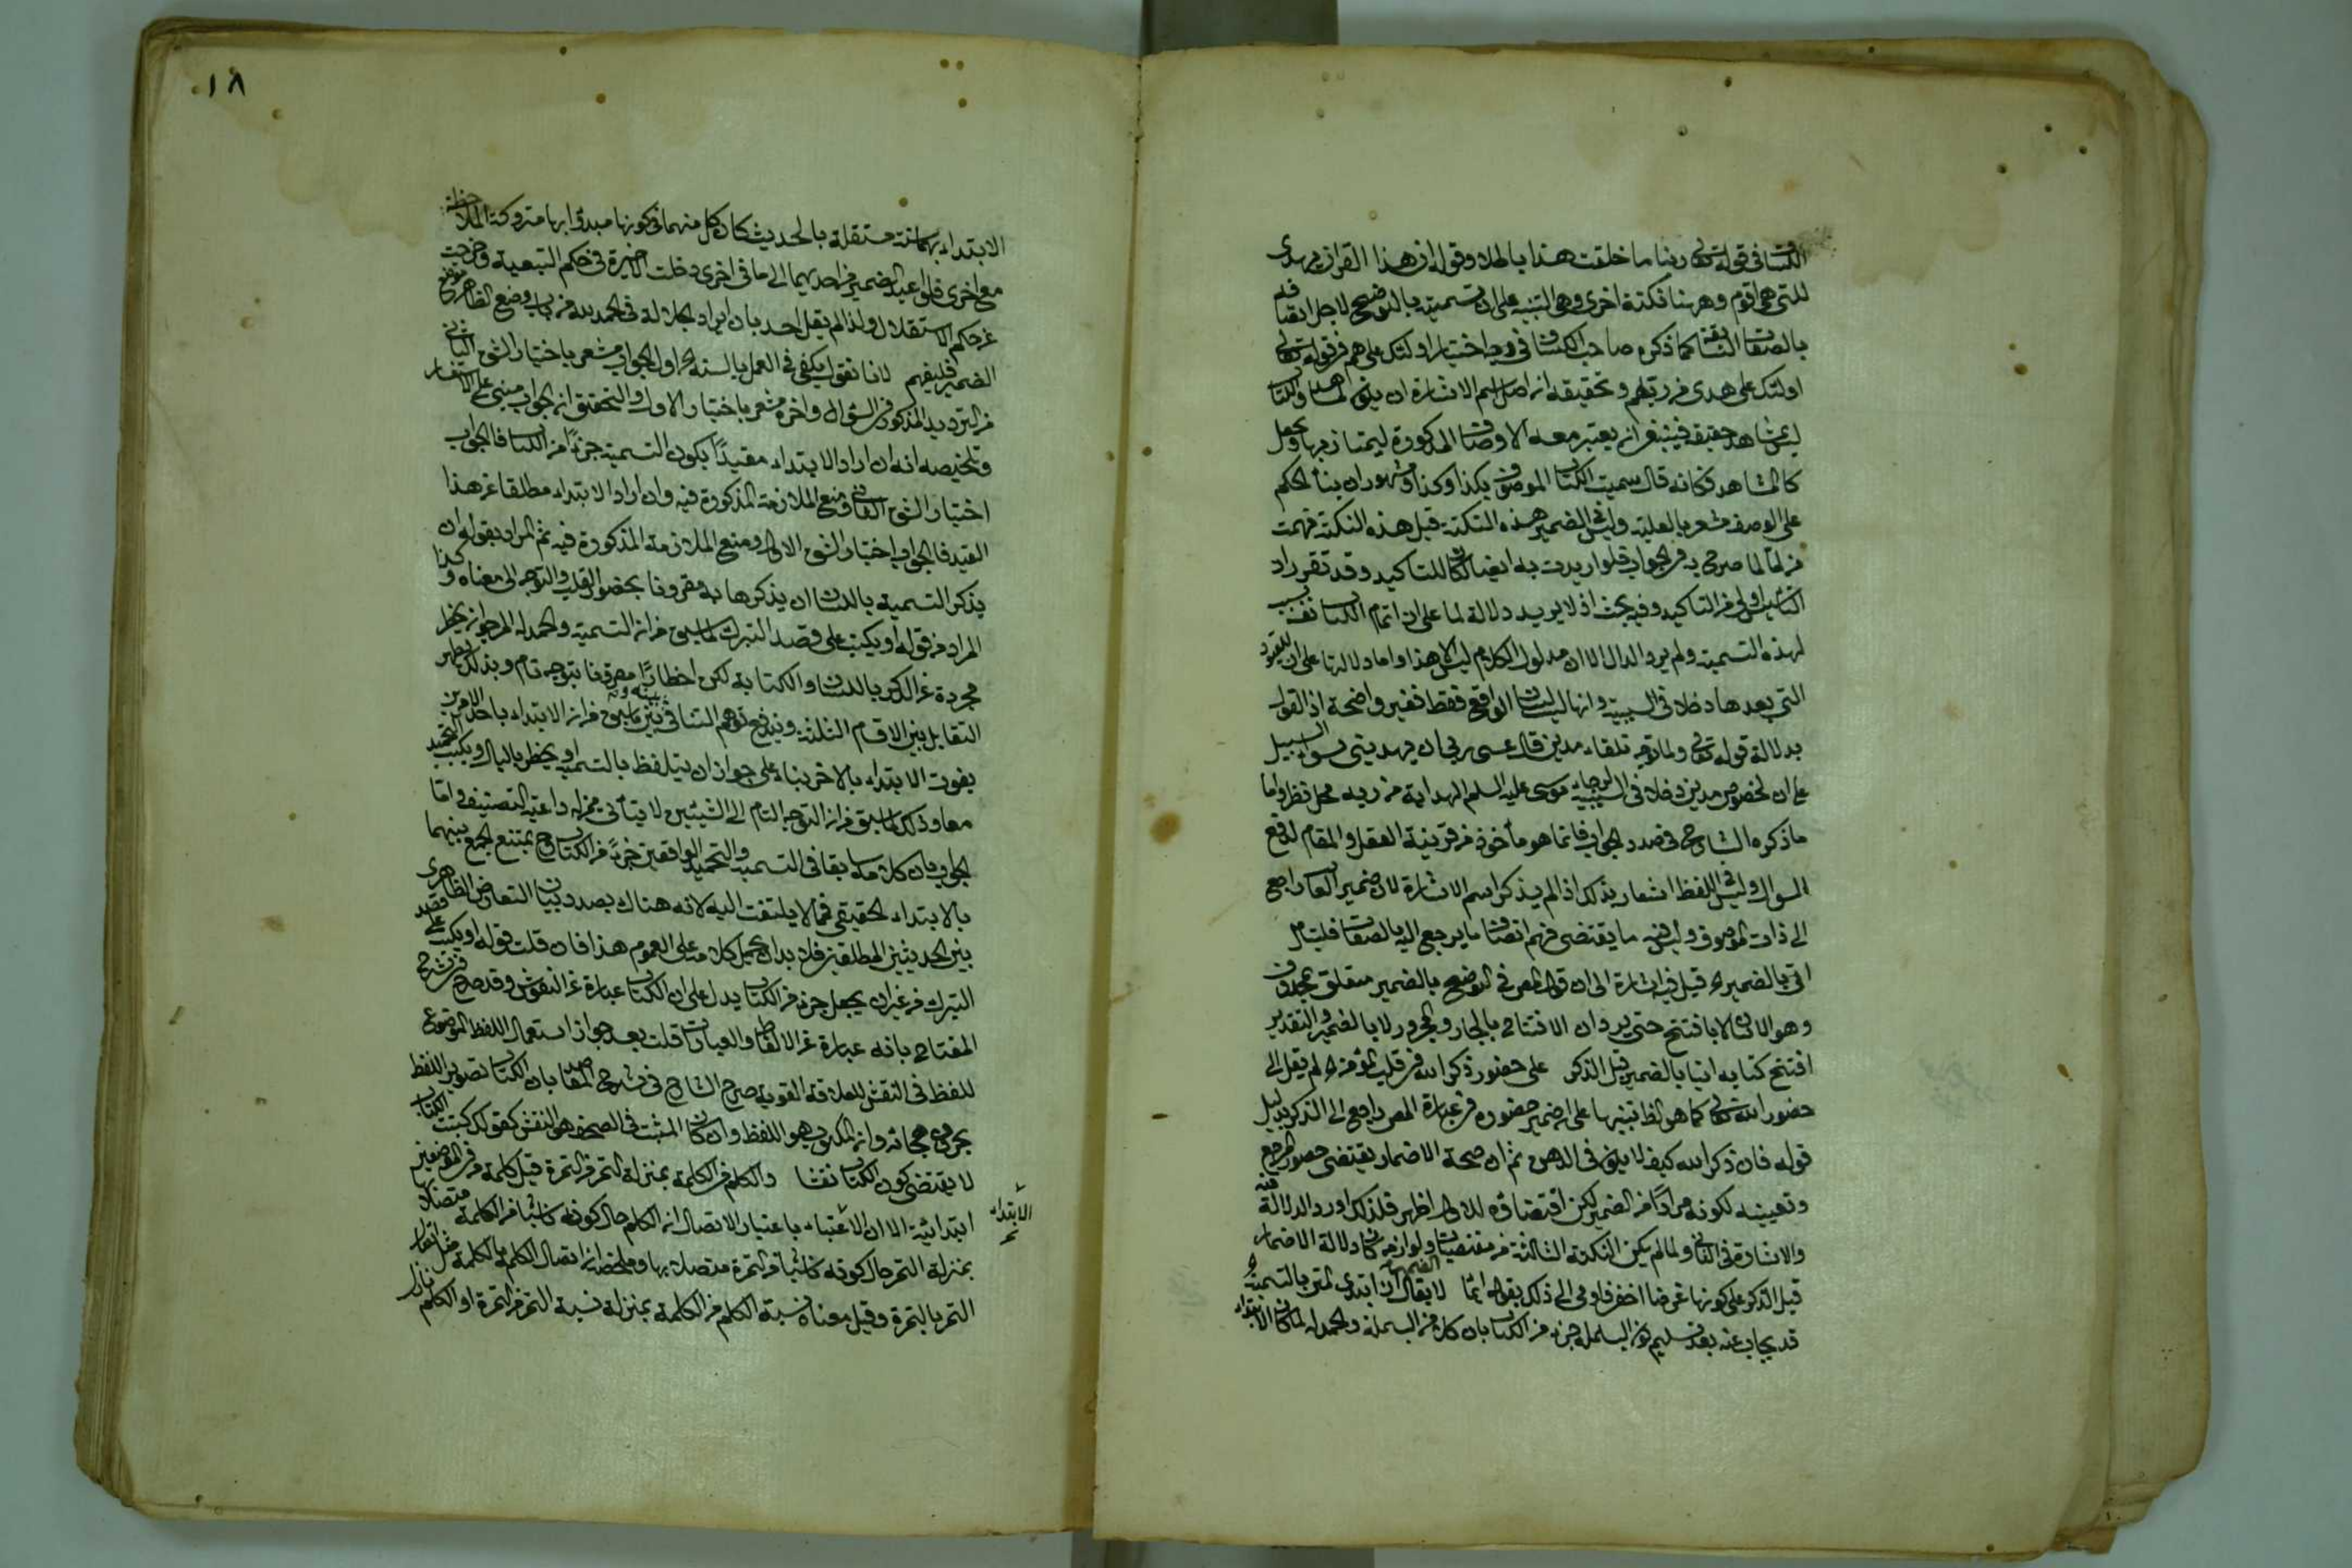 الكتاب في قوله تعالى ربنا ما خلقت هذا باطلا وقوله ان هذا القرآن يهدى
للتي هي اقوم وههنا نكتة اخرى وهي التنبيه على ان تسميته بالتوضيح لاجل اتصافه
بالصفات السابقة كما ذكره صاحب الكشاف في وجه اختيار اولئك على هم في قوله تعالى
اولئك على هدى من ربهم وتحقيقه ان اصل اسم الاشارة ان يشار به لمشاهد والكتاب
ليس بمشاهد حقيقة فينبغي ان يعتبر معه الاوصاف المذكورة ليمتاز بها ويجعل
كالمشاهد فكانه قال سميت الكتاب الموصوف بكذا وكذا ومشهور ان بناء الحكم
على الوصف مشعر بالعلية وليس في الضمير هذه النكتة قيل هذه النكتة فهمت
من لما لما صرح به في الجواب فلو اريدت به ايضا لكان للتاكيد وقد تقرر ان
التاسيس اولى من التاكيد وفيه بحث اذ لا يريد دلالة لما على ان اتمام الكتاب سبب
لهذه التسمية ولم يرد الدال الا ان مدلول الكلام ليس الا هذا واما دلالتها على ان للقيود
التي بعدها دخلا في السببية وانها ليست لبيان الواقع فقط فغير واضحة اذ القول
بدلالة قوله تعالى ولما توجه تلقاء مدين قال عسى ربي ان يهديني سواء السبيل
على ان لخصوص مدين دخلا في السببية لرجاء موسى عليه السلم الهداية من ربه محل نظر واما
ما ذكره الشارح في صدد الجواب فانما هو مأخوذ من قرينة العقل والمقام لدفع
السوال وليس في اللفظ اشعار بذلك اذ لم يذكر اسم الاشارة لان ضمير الغائب راجع
الى ذات الموصوف وليس فيه ما يقتضى فهم اتصاف ما يرجع اليه بالصفات فليتأمل
اتى بالضمير قيل فيه اشارة الى ان قول المص في التوضيح بالضمير متعلق بمحذوف
وهو الاتيان لا بافتتح حتى يرد ان الافتتاح بالجار والمجرور لا بالضمير والتقدير
افتتح كتابه اتيا بالضمير قبل الذكر على حضور ذكر الله في قلب المؤمن لم يقل الى
حضور الله تعالى كما هو الظ تنبيها على ان ضمير حضوره في عبارة المص راجع الى الذكر بدليل
قوله فان ذكر الله كيف لا يكون في الذهن ثم ان صحة الاضمار يقتضى حضور المرجع
وتعيينه لكونه مرادا من الضمير لكن اقتضاؤه للاول اظهر فلذلك اورد الدلالة فيه
والاشارة في الثاني ولما لم يكن النكتة الثالثة من مقتضيات الضمير ولوازمه كان دلالة الاضمار
قبل الذكر على كونها غرضا اخفى فاومى الى ذلك بقوله ايضا لا يقال ان ابتدى المتن بالتسمية
قد يجاب عنه بعد تسليم كون البسملة جزء من الكتاب بان كلا من البسملة والحمدلة لما كان الابتداء
١٨
الابتداء بهما سنة مستقلة بالحديث كان كل منهما في كونها مبدؤا بها متروكة الملاحظة
مع اخرى فلو اعيد الضمير من احديهما الى ما في اخرى دخلت الاخيرة في حكم التبعية وخرجت
عن حكم الاستقلال ولذا لم يقل احد بان ايراد الجلالة في الحمد لله من باب وضع الظاهر موضع
الضمير فليفهم لانا نقول يكفى في العمل بالسنة اول الجواب مشعر باختيار الشق الثاني
من الترديد المذكور في السؤال واخره مشعر باختيار الاول والتحقيق ان الجواب مبنى على الاستفسار
وتلخيصه انه ان اراد الابتداء مقيدا بكون التسمية جزءا من الكتاب فالجواب
اختيار الشق الثاني ومنع الملازمة المذكورة فيه وان اراد الابتداء مطلقا عن هذا
القيد فالجواب اختيار الشق الاول ومنع الملازمة المذكورة فيه ثم المراد بقوله ان
يذكر التسمية باللسان ان يذكرها به مقرونا بحضور القلب والتوجه الى معناه وكذا
المراد من قوله او يكتب على قصد التبرك لما سبق من ان التسمية والحمد له المرجوان يخطر
مجردة عن الذكر باللسان والكتابة لكن اخطارا مقرونا بتوجه تام وبذلك يظهر
التقابل بين الاقسام الثلثة ويندفع توهم التنافي بينه وبين ما سبق من ان الابتداء باحد الامرين
يفوت الابتداء بالاخر بناء على جواز ان يتلفظ بالتسمية او يخطر بالبال ويكتب التحميد
معا وذلك لما سبق من ان التوجه التام الى الشيئين لا يتأتى ممن له داعية التصنيف واما
الجواب بان كلامه سابقا في التسمية والتحميد الواقعين جزءا من الكتاب وح يمتنع الجمع بينهما
بالابتداء الحقيقي فمما لا يلتفت اليه لانه هناك بصدد بيان التعارض الظاهرى
بين الحديثين المطلقين فلا بد ان يحمل كلامه على العموم هذا فان قلت قوله او يكتب على قصد
التبرك من غير ان يجعل جزء من الكتاب يدل على ان الكتاب عبارة عن النقوش وقد صرح في شرح
المفتاح بانه عبارة عن الالفاظ والعبارات قلت بعد جواز استعمال اللفظ الموضوع
للفظ في النقش للعلاقة القوية صرح الشارح في شرح المقاصد بان الكتاب تصوير اللفظ
بحروف هجائه وان المكتوب هو اللفظ وان كان المثبت في الصحف هو النقش كقولك كتبت الكتاب
لا يقتضى كون الكتاب نقشا والكلم من الكلمة بمنزلة التمر من التمرة قيل كلمة من في الموضعين
ابتدائية الا ان الاعتبار باعتبار الاتصال ان الكلم حال كونه كائنا من الكلمة متصلا بها
بمنزلة التمر حال كونه كائنا من التمرة متصلا بها وملخصه ان اتصال الكلم بالكلمة مثل اتصال
التمر بالتمرة وقيل معناه نسبة الكلم من الكلمة بمنزلة نسبة التمر من التمرة او الكلم
الابتداء